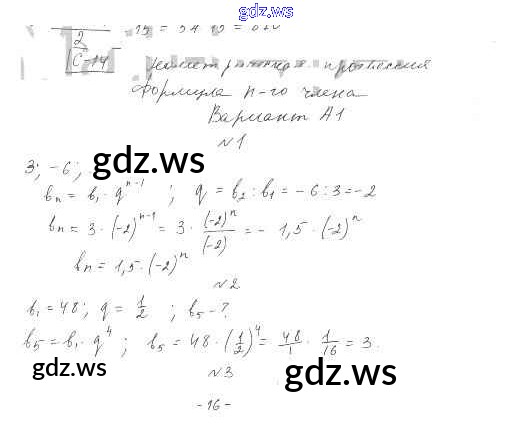 gdz.ws
2
С-14
Геометрическая прогрессия
Формула n-го члена
Вариант А1
№1
3; -6;
gdz.ws
bₙ = b₁ · qⁿ⁻¹ ; q = b₂ : b₁ = -6 : 3 = -2
bₙ = 3 · (-2)ⁿ⁻¹ = 3 · (-2)ⁿ/(-2) = - 1,5 · (-2)ⁿ
bₙ = 1,5 · (-2)ⁿ
№2
b₁ = 48; q = 1/2 ; b₅ - ?
b₅ = b₁ · q⁴ ; b₅ = 48 · (1/2)⁴ = 48/1 · 1/16 = 3.
gdz.ws
№3
gdz.ws
- 16 -